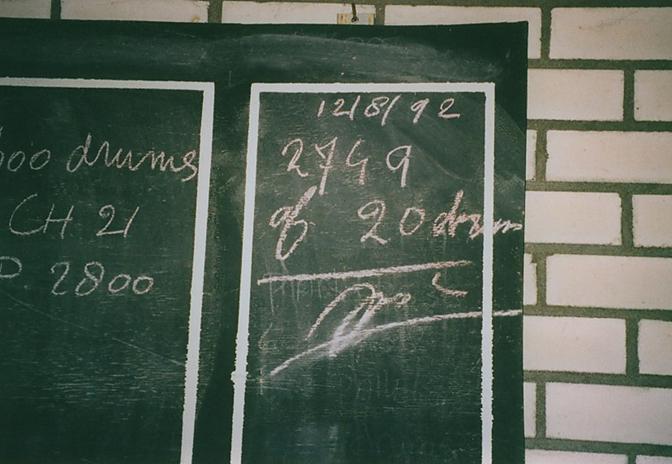 600 drums
CH 21
P. 2800
12/8/92
2749
of 20 drums